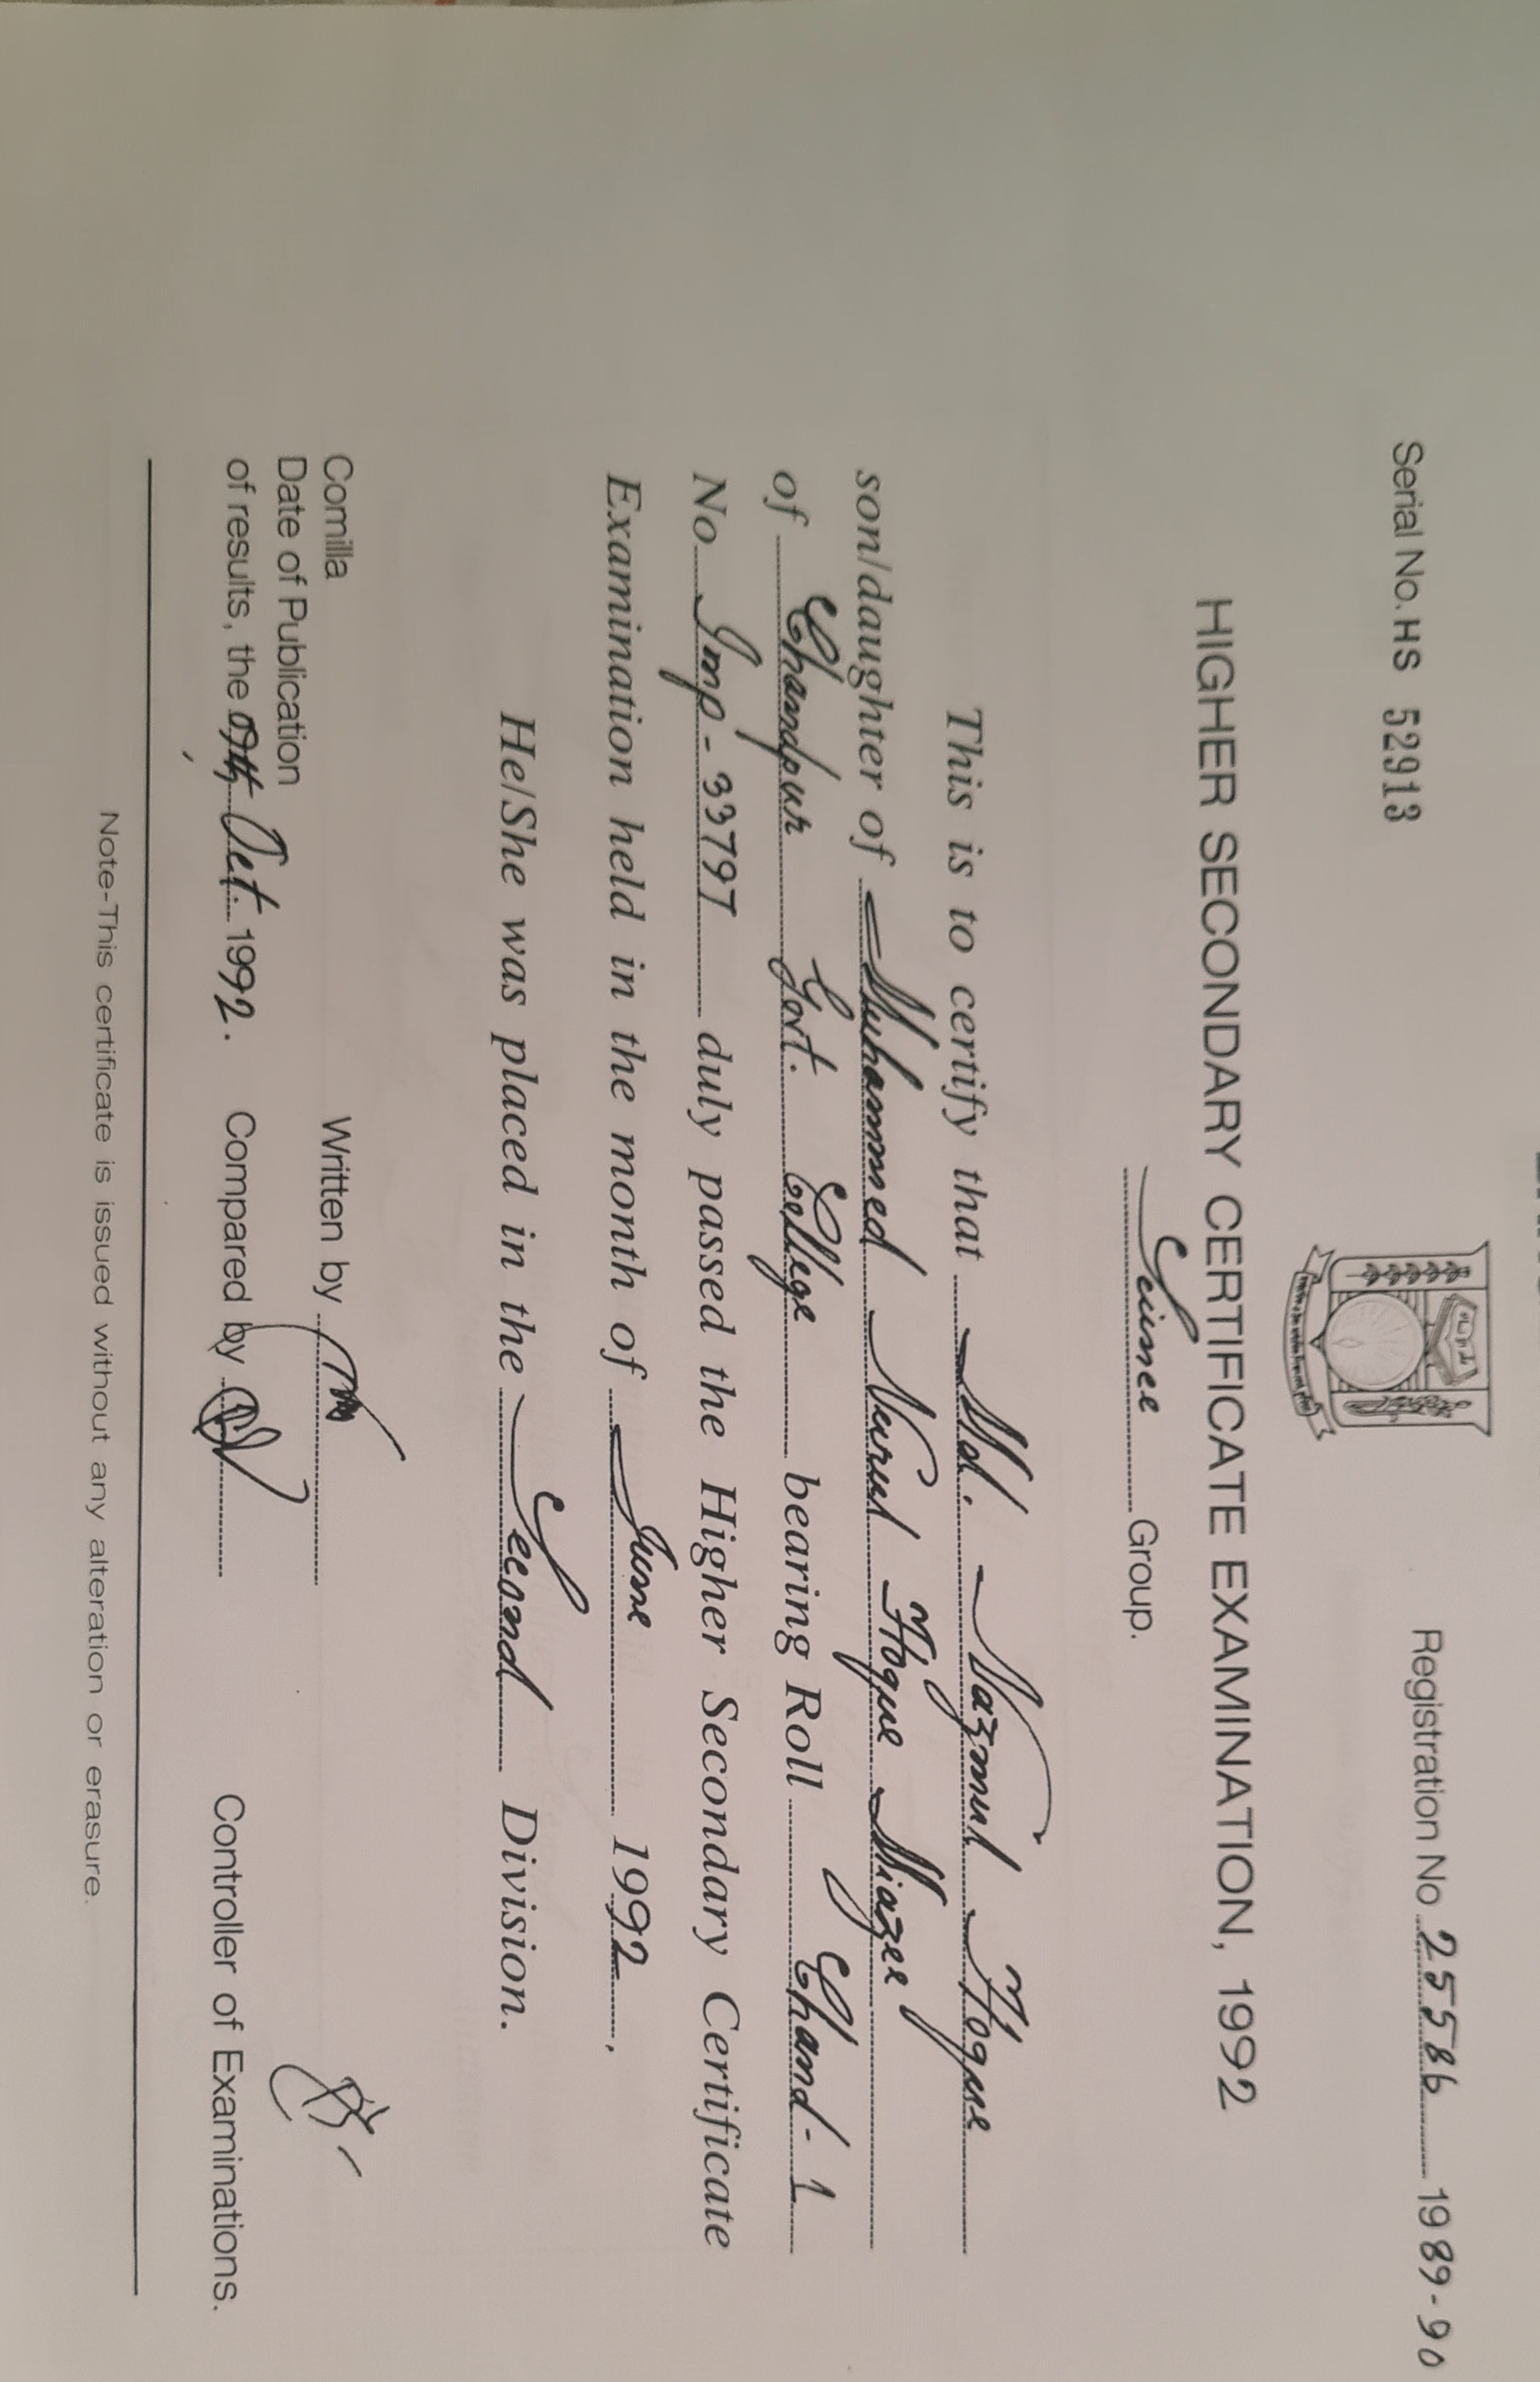 Serial No. HS 52913 Registration No 25586 1989-90
HIGHER SECONDARY CERTIFICATE EXAMINATION, 1992
Science Group.
This is to certify that Md. Nazmul Hoque
son/daughter of Muhammed Nurul Hoque Miazee
of Chandpur Govt. College bearing Roll Chand-1
No Imp-33797 duly passed the Higher Secondary Certificate
Examination held in the month of June 1992,
He/She was placed in the Second Division.
Comilla
Date of Publication Written by
of results, the Oct. 1992. Compared by Controller of Examinations.
Note-This certificate is issued without any alteration or erasure.